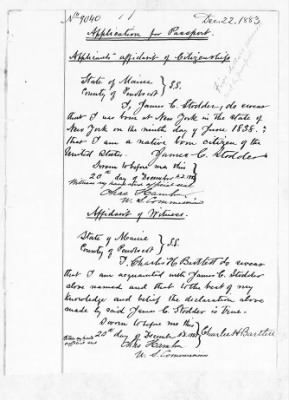 No 9040
Dec 22, 1883
Application for Passport.
Applicants affidavit of Citizenship
State of Maine } S.S.
County of Penobscot
I, James C. Stodder, do swear
that I was born at New York in the state of
New York on the ninth day of June 1838.:
that I am a native born citizen of the
United States. James C. Stodder
Sworn to before me this
20th day of December A.D. 1883
Witness my hand and official seal
Chas Hamlin
U.S. Commissioner
Affidavit of Witness.
State of Maine } S.S.
County of Penobscot
I, Charles H. Bartlett do swear
that I am acquainted with James C. Stodder
above named and that to the best of my
knowledge and belief the declaration above
made by said James C. Stodder is true.
Sworn to before me this
20th day of December A.D. 1883 } Charles H Bartlett
Witness my hand
official seal
Chas Hamlin
U.S. Commissioner